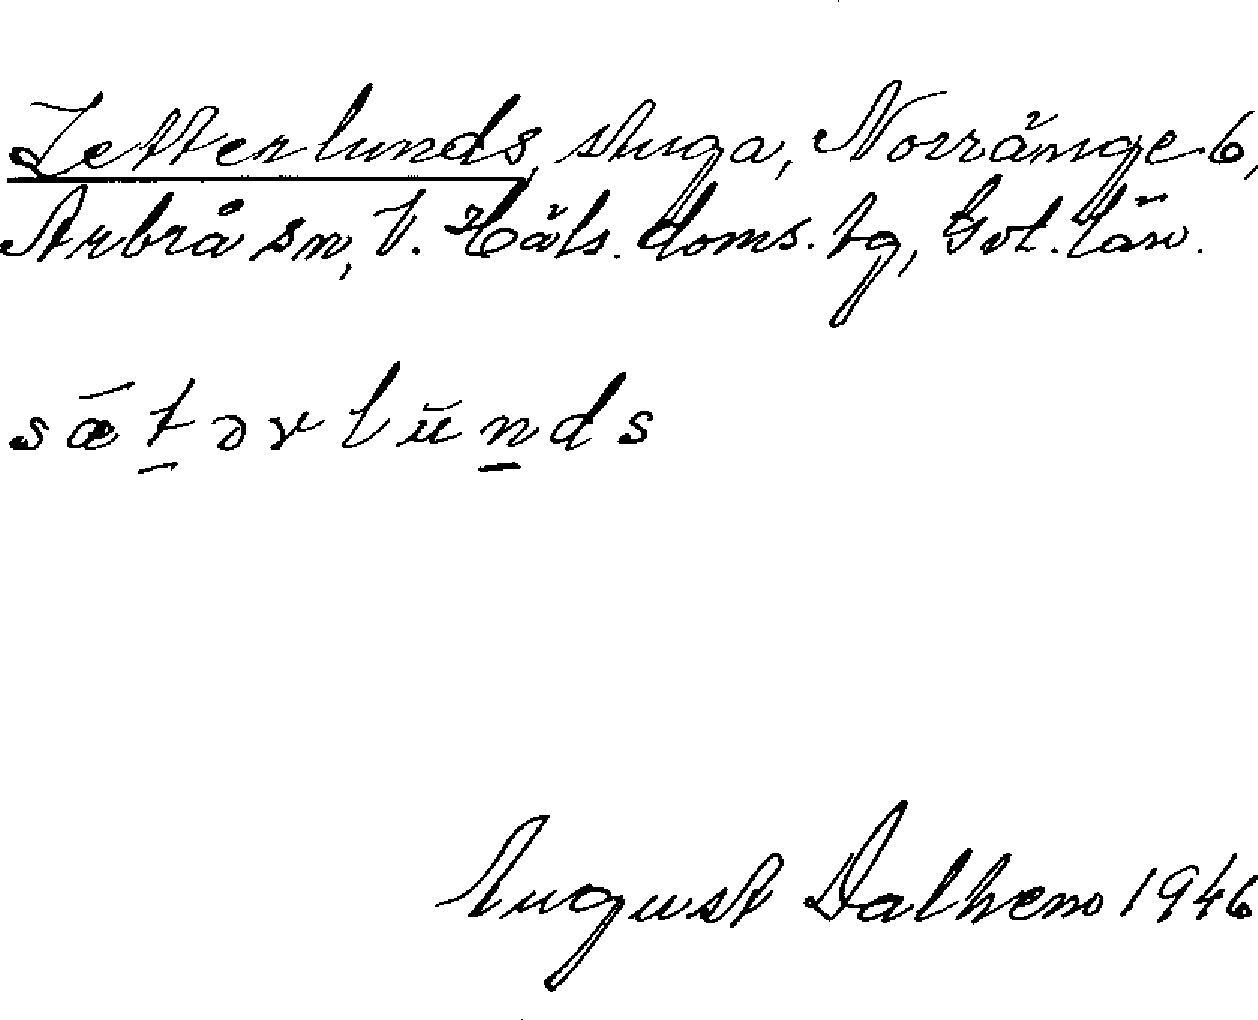 Zetterlunds stuga, Norränge 6,
Arbrå sn, V. Häls. doms. tg, Gvl. län.
sǽt̠ərlŭn̠ds
August Dalhem 1946